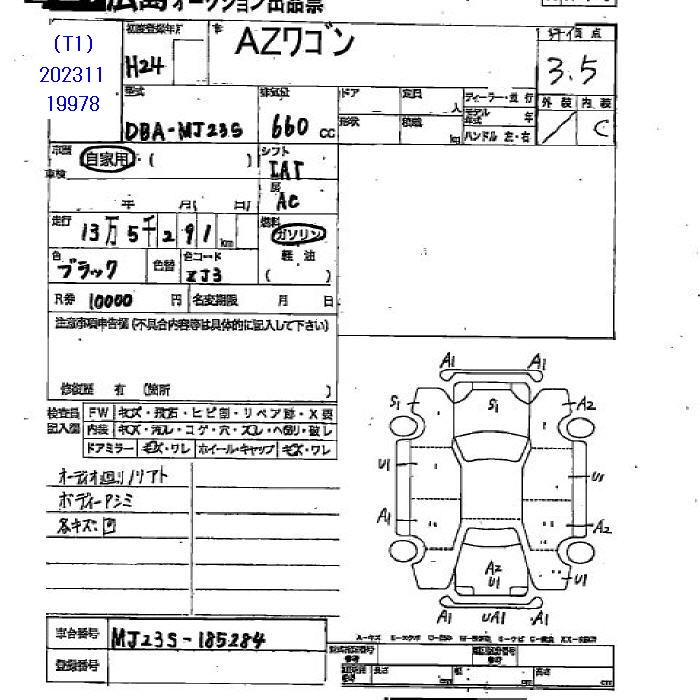 広島オークション出品票
(T1)
202311
19978
初度登録年月
H24
車
AZワゴン
評価点
3.5
型式
DBA-MJ23S
排気量
660 CC
ドア
定員
人
ディーラー・並行
外装
内装
C
形状
積載
kg
モデル年式
年
ハンドル 左・右
車歴
自家用・( )
シフト
IAT
車検
年 月 日
房
AC
走行
13万5千291km
燃料
ガソリン
軽油
( )
色
ブラック
色替
色コード
ZJ3
R券 10000 円
名変期限 月 日
注意事項申告欄(不具合内容等は具体的に記入して下さい)
修復歴 有 (箇所 )
検査員
記入欄
FW
キズ・飛石・ヒビ割・リペア跡・X要
内装
キズ・汚レ・コゲ・穴・スレ・ヘタリ・破レ
ドアミラー
キズ・ワレ
ホイール・キャップ
キズ・ワレ
オーディオ廻り/リアト
ボディーPシミ
各キズ凹
A1 A1
S1 S1 A2
U1 U1
A1 A2
A2
U1 U1
A1 UA1 A1
車台番号
MJ23S-185284
登録番号
長さ cm 幅 cm 高さ cm